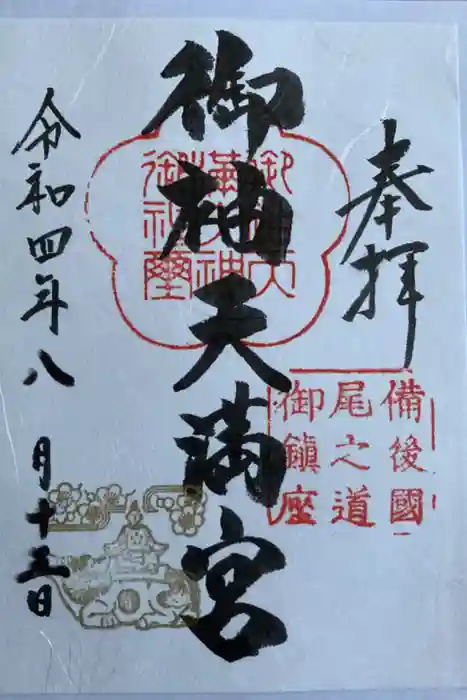 奉拝
備後國
尾之道
御鎮座
御袖天満宮
令和四年八月十五日